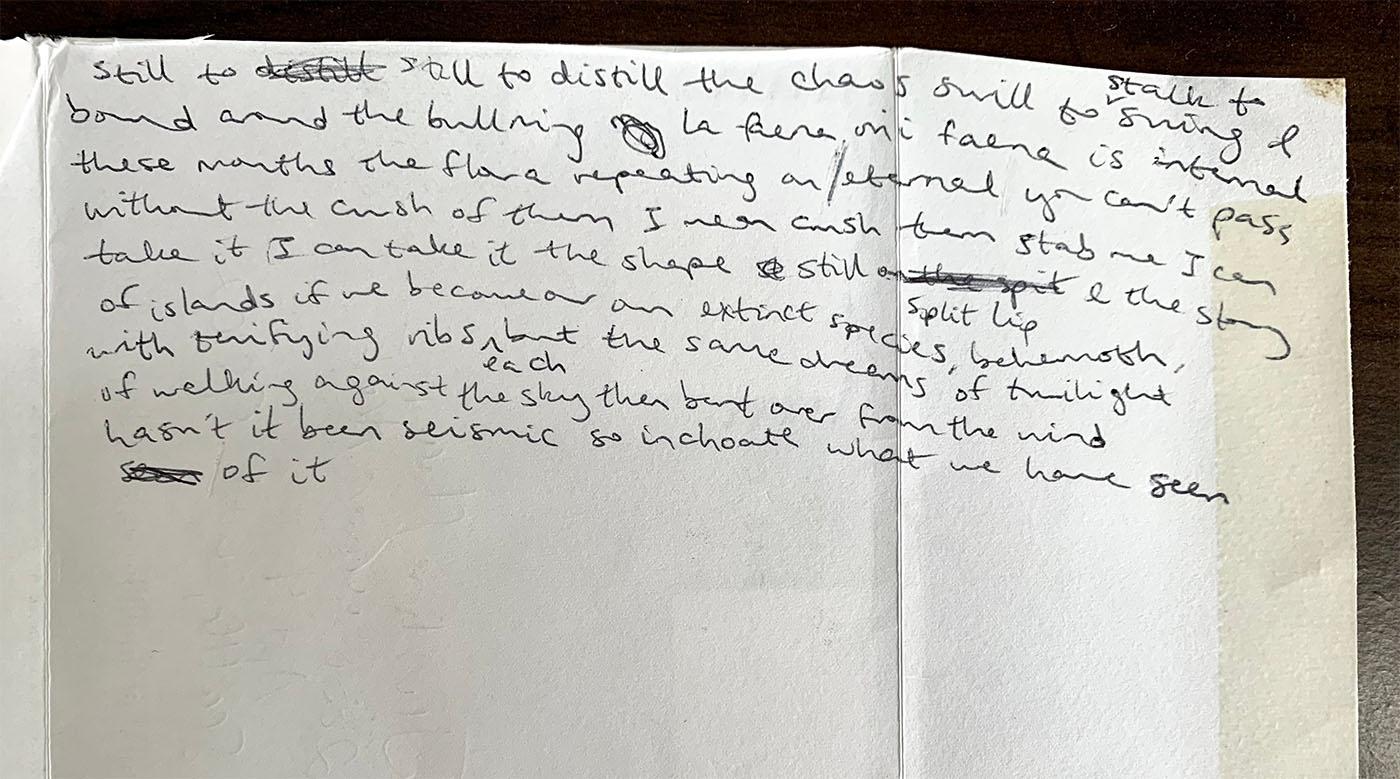 still to still to distill the chaos swill to stalk to swing &
bound around the bullring la faena mi faena is internal
these months the flora repeating an / eternal you can't pass
without the crush of them I mean crush them stab me I can
take it I can take it the shape still & the story
split lip
of islands if we become an extinct species, behemoth,
with terrifying ribs, but the same dreams of twilight
each
of walking against the sky then bent over from the wind
hasn't it been seismic so inchoate what we have seen
of it